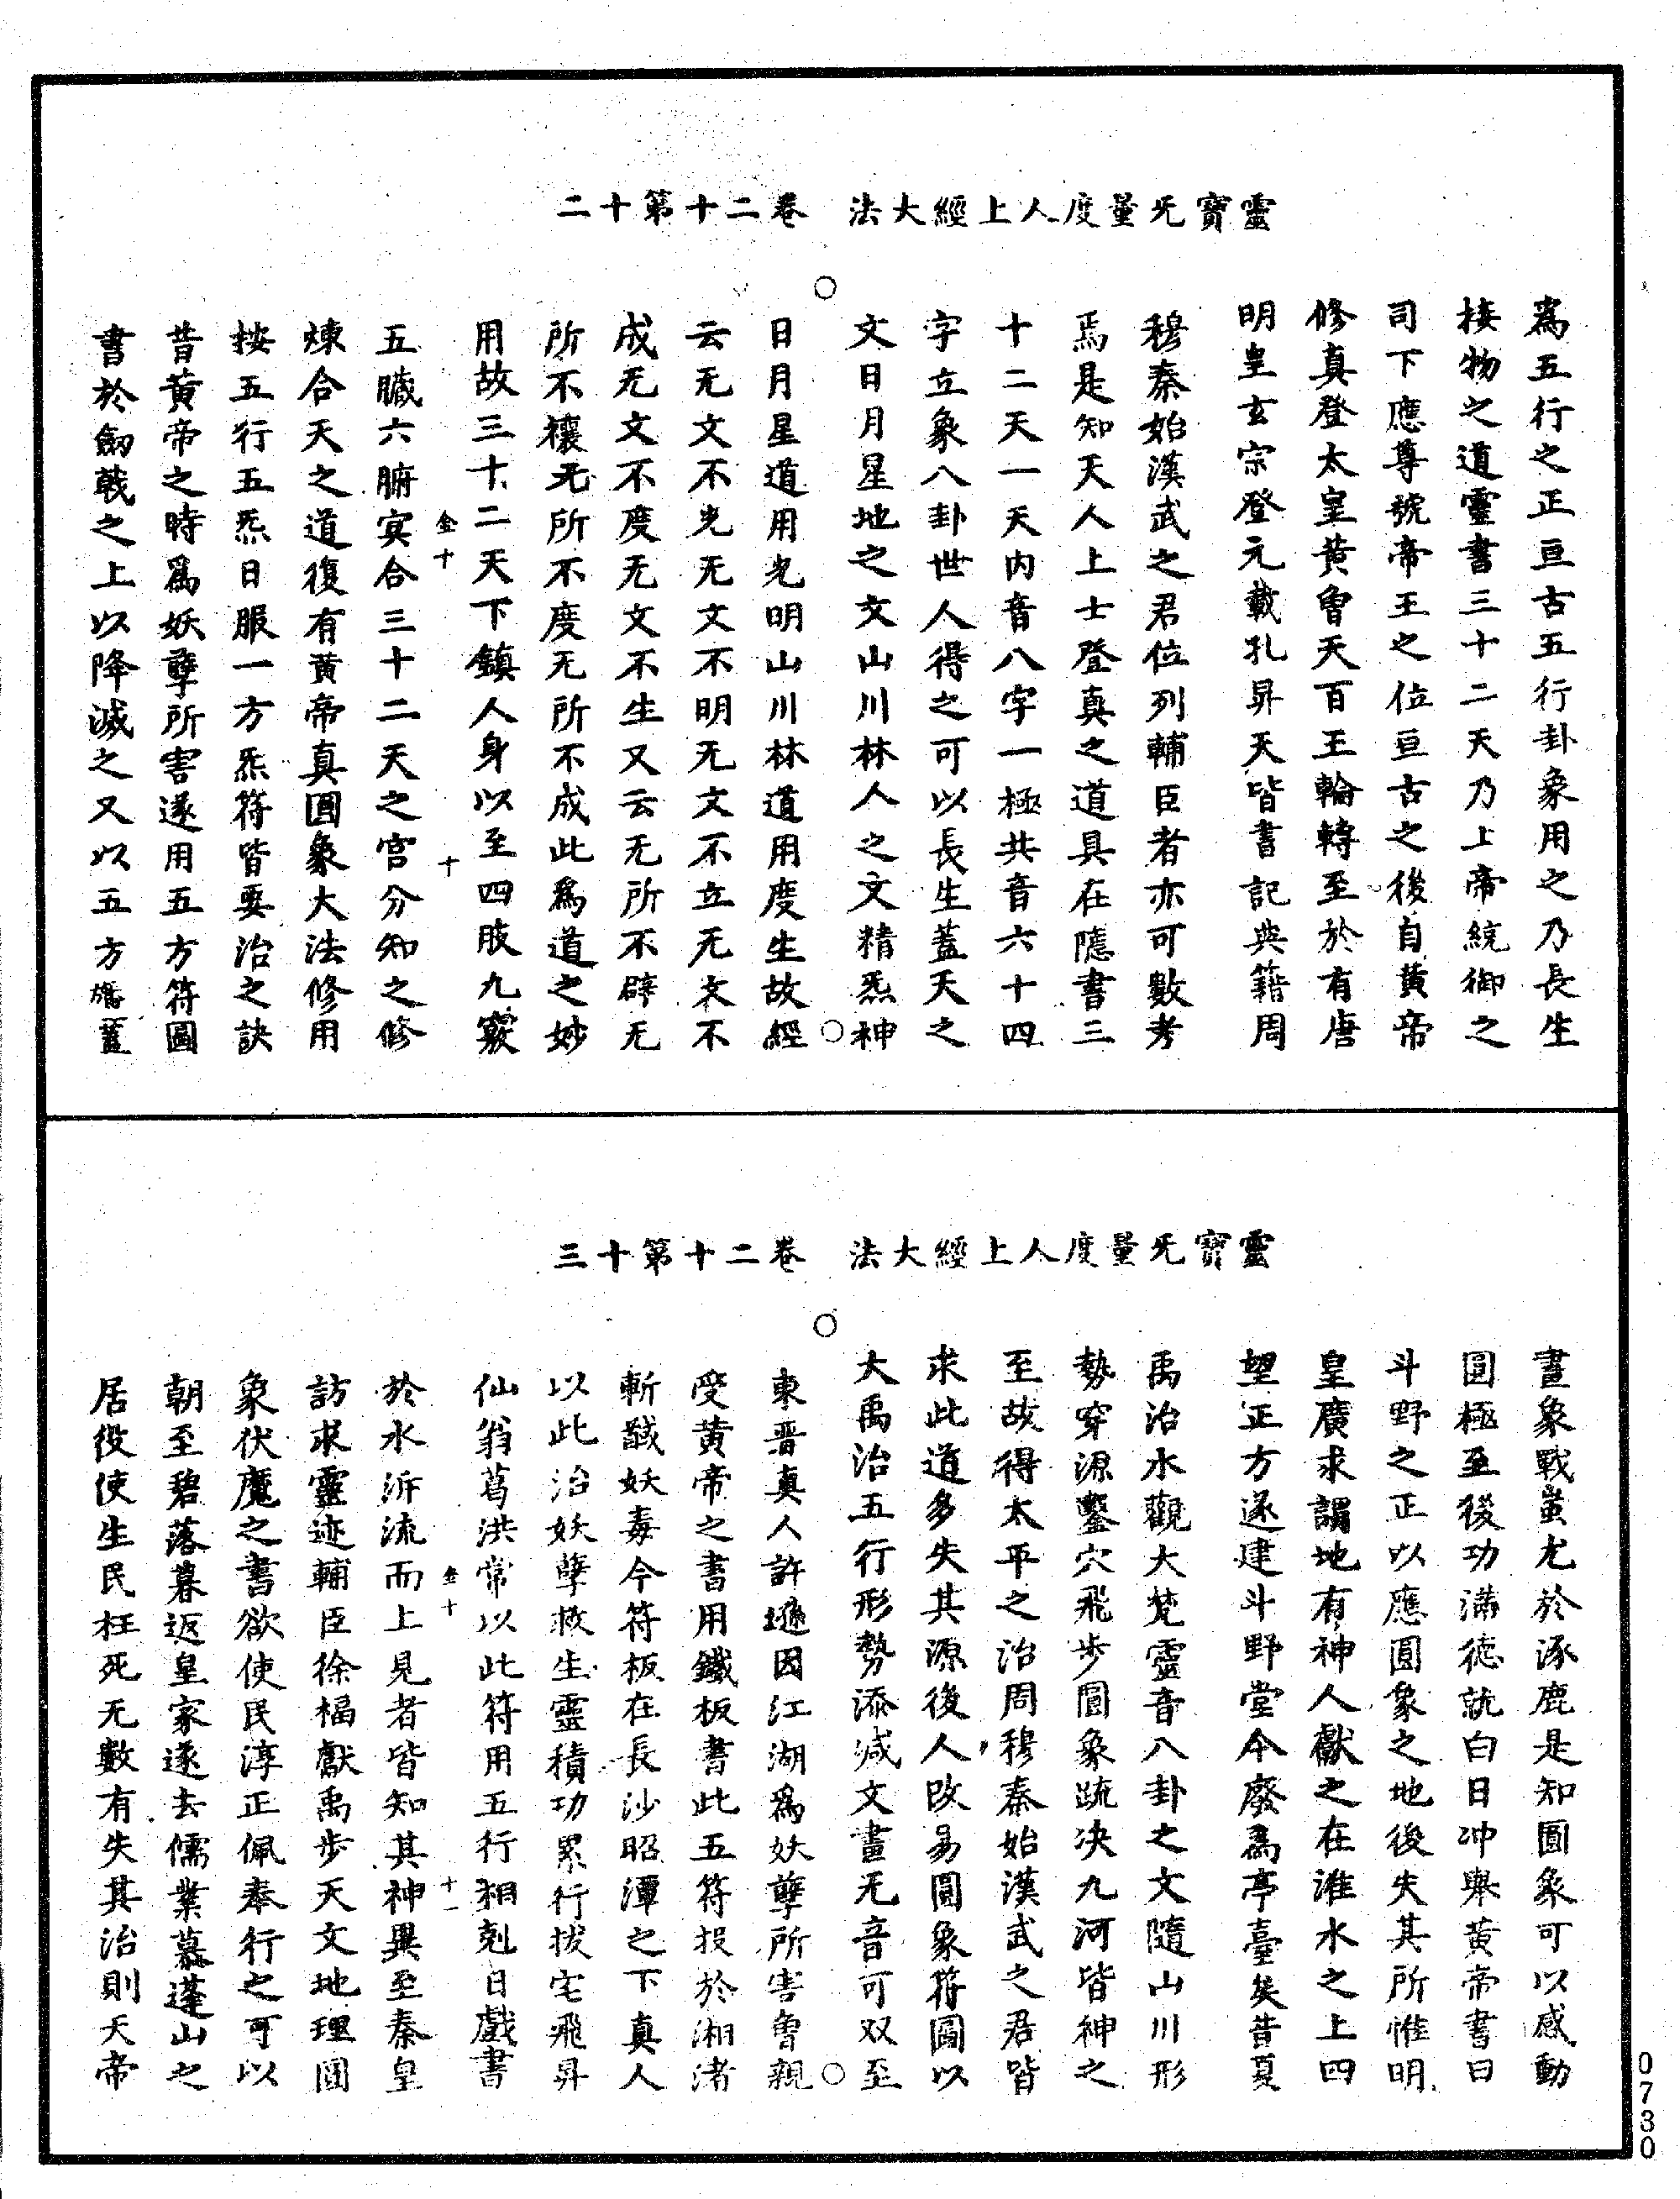 靈寶无量度人上經大法　卷二十第十二
爲五行之正亘古五行卦象用之乃長生
接物之道靈書三十二天乃上帝統御之
司下應尊號帝王之位亘古之後自黃帝
修真登太皇黃曾天百王輪轉至於有唐
明皇玄宗登元載孔昇天皆書記典籍周
穆秦始漢武之君位列輔臣者亦可數考
焉是知天人上士登真之道具在隱書三
十二天一天內音八字一極共音六十四
字立象八卦世人得之可以長生蓋天之
文日月星地之文山川林人之文精炁神
日月星道用光明山川林道用度生故經
云无文不光无文不明无文不立无文不
成无文不度无文不生又云无所不辟无
所不禳无所不度无所不成此爲道之妙
用故三十二天下鎮人身以至四肢九竅
五臟六腑冥合三十二天之宮分知之修
煉合天之道復有黃帝真圓象大法修用
按五行五炁日服一方炁符皆要治之訣
昔黃帝之時爲妖孽所害遂用五方符圖
書於劍戟之上以降滅之又以五方旛蓋
金十　十
靈寶无量度人上經大法　卷二十第十三
畫象戰蚩尤於涿鹿是知圓象可以感動
圓極至後功滿德就白日冲舉黃帝書曰
斗野之正以應圓象之地後失其所惟明
皇廣求謂地有神人獻之在淮水之上四
望正方遂建斗野堂今廢爲亭臺矣昔夏
禹治水觀大梵靈音八卦之文隨山川形
勢穿源鑿穴飛步圓象疏決九河皆神之
至故得太平之治周穆秦始漢武之君皆
求此道多失其源後人改易圓象符圖以
大禹治五行形勢添減文畫无音可双至
東晉真人許遜因江湖爲妖孽所害曾親
受黃帝之書用鐵板書此五符投於湘渚
斬馘妖毒今符板在長沙昭潭之下真人
以此治妖孽救生靈積功累行拔宅飛昇
仙翁葛洪常以此符用五行相剋日戲書
於水泝流而上見者皆知其神異至秦皇
訪求靈迹輔臣徐福獻禹步天文地理圓
象伏魔之書欲使民淳正佩奉行之可以
朝至碧落暮返皇家遂去儒業慕蓬山之
居役使生民枉死无數有失其治則天帝
金十　十一
0730